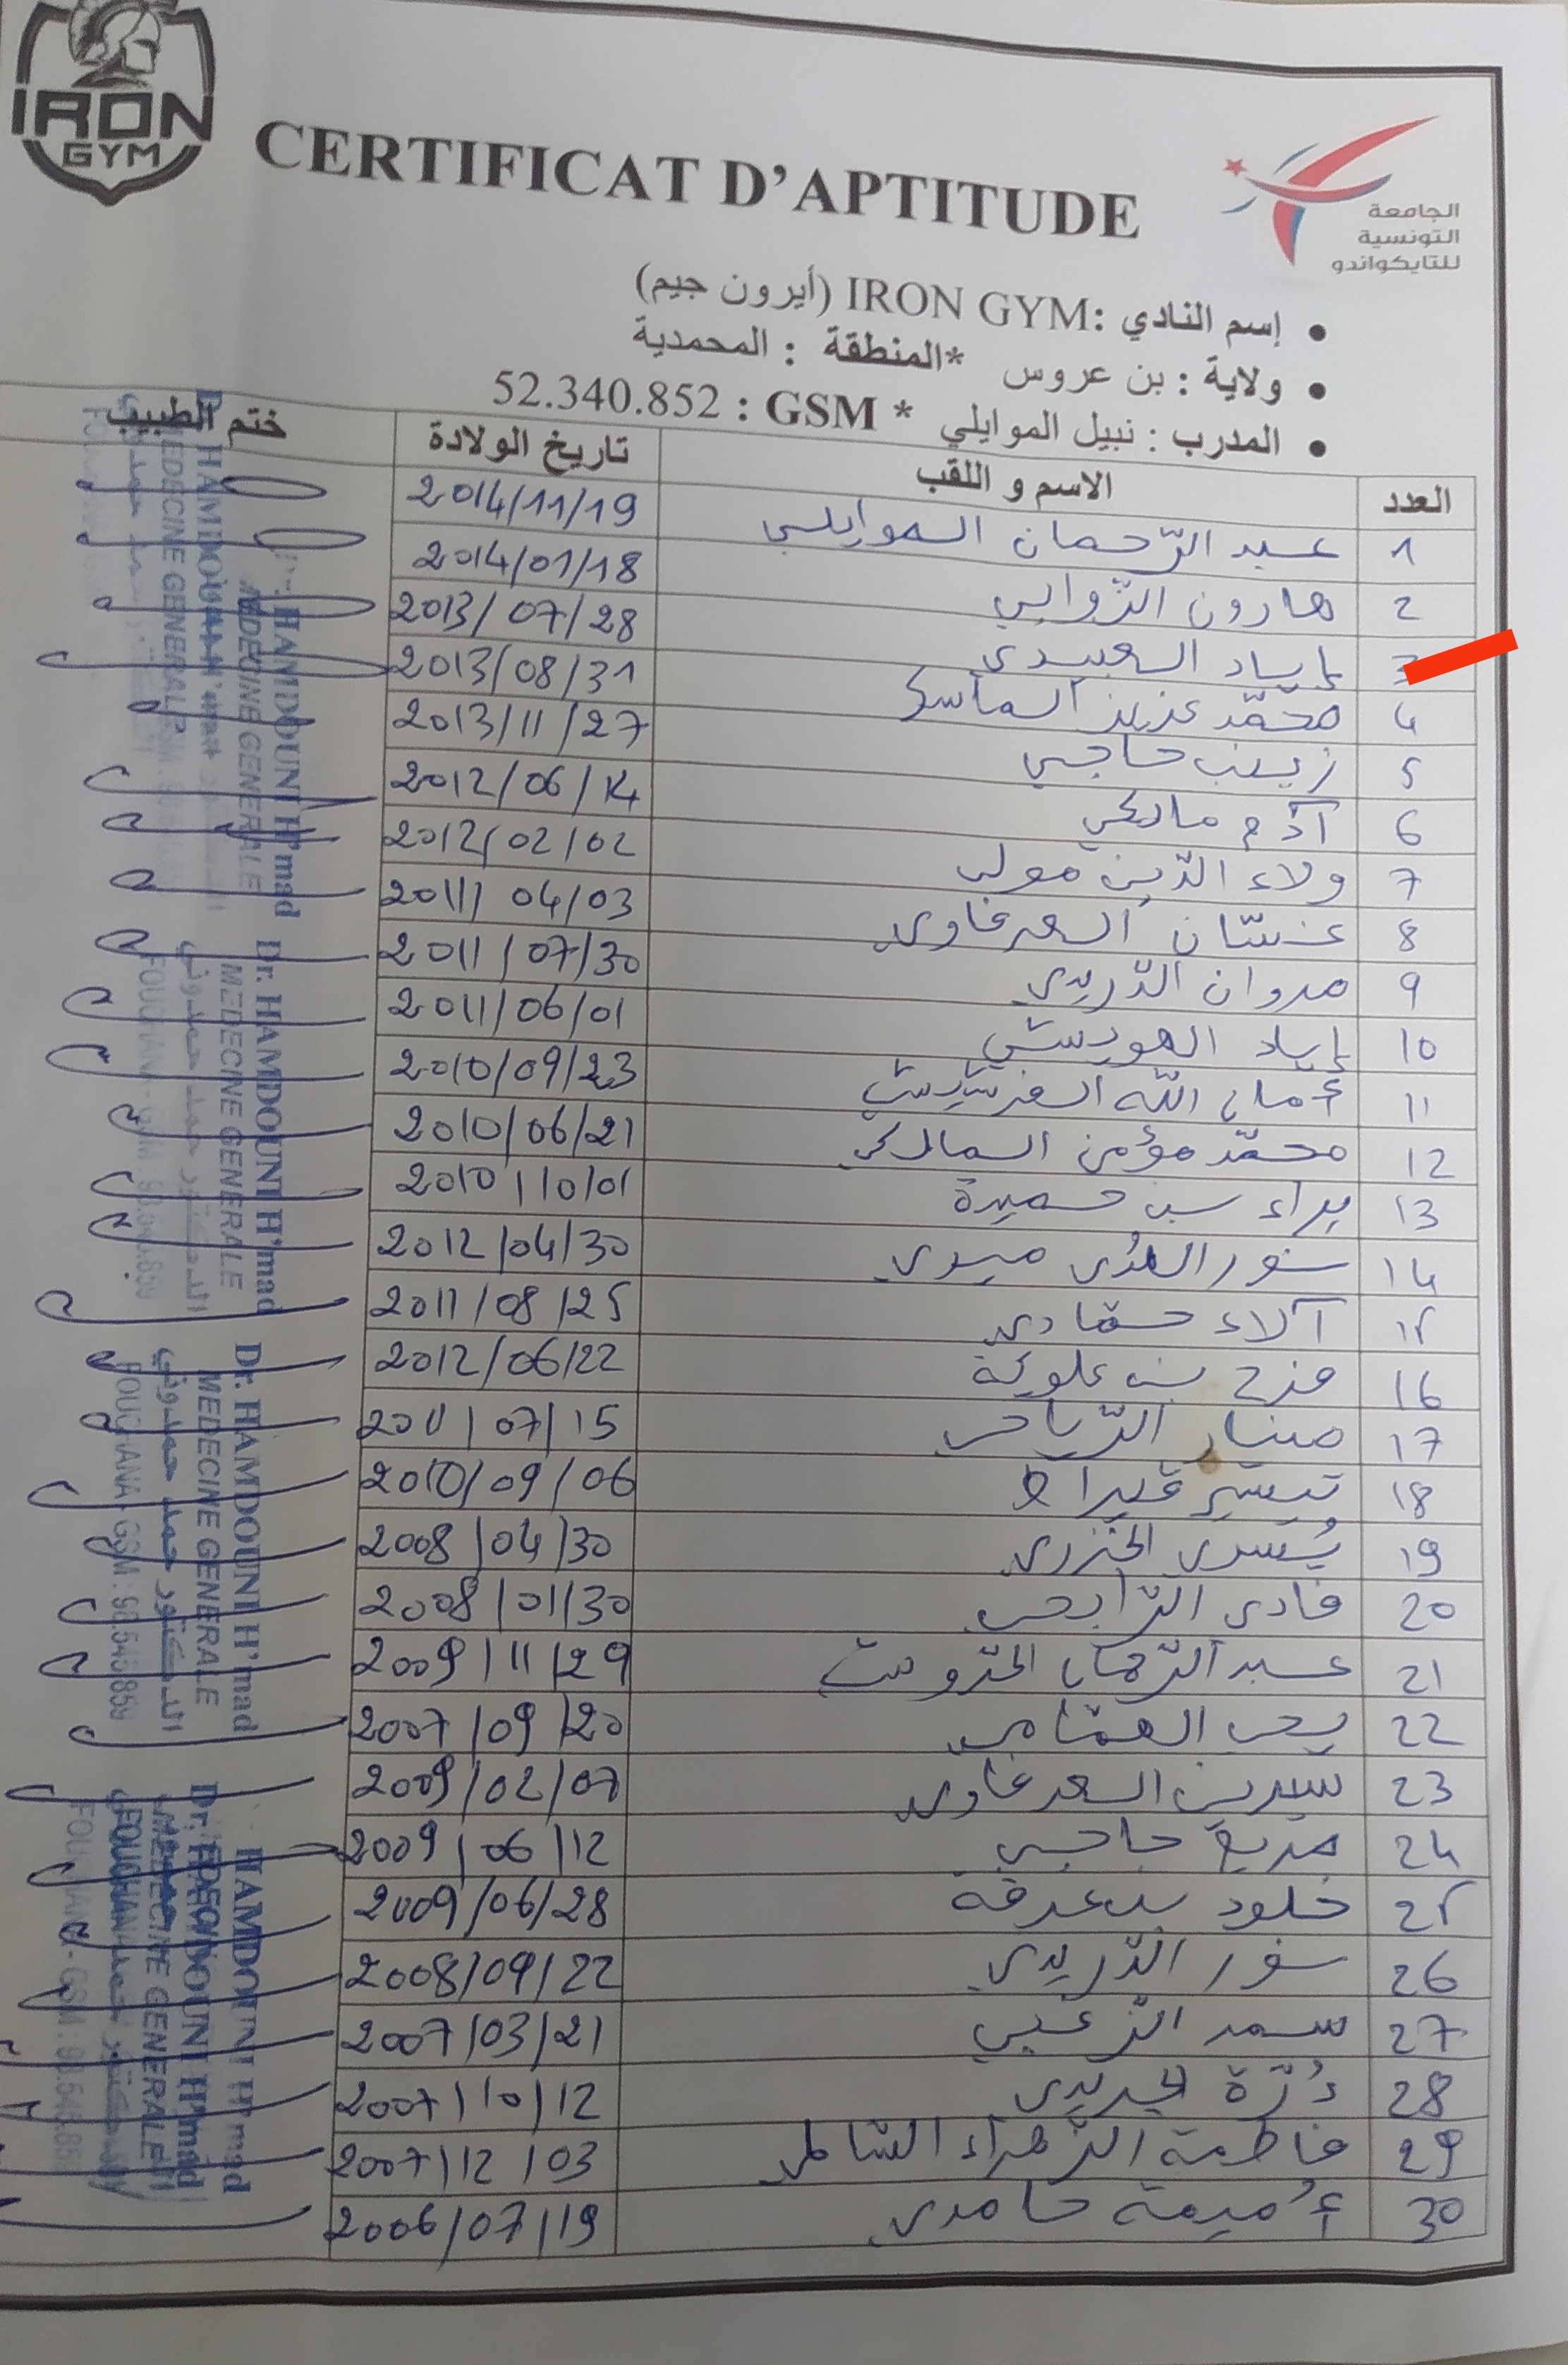 IRON
GYM
CERTIFICAT D'APTITUDE
الجامعة
التونسية
للتايكواندو
• إسم النادي :IRON GYM (أيرون جيم)
• ولاية : بن عروس *المنطقة : المحمدية
• المدرب : نبيل الموايلي * GSM : 52.340.852
العدد الاسم و اللقب تاريخ الولادة ختم الطبيب
1 عبد الرّحمان الموايلي 2014/11/19
2 هارون الزّوابي 2014/01/18
3 إياد العبيدي 2013/07/28
4 محمّد عزيز 2013/08/31
5 زينب حاجي 2013/11/27
6 آدم مالكي 2012/06/14
7 ولاء الدّين مولى 2012/02/02
8 غسّان السعرغاوي 2011/04/03
9 مروان الدّريدي 2011/07/30
10 إياد 2011/06/01
11 أمان الله 2010/09/23
12 محمّد مؤمن المالكي 2010/06/21
13 براء بن حميدة 2010/10/01
14 نور الهدى ميموني 2012/04/30
15 آلاء حمّادي 2011/08/25
16 فرح بن علوكة 2012/06/22
17 منيار الرّياحي 2011/07/15
18 تيسير قيراط 2010/09/06
19 يُسرى الخزري 2008/04/30
20 فادي الرّابحي 2008/01/30
21 عبد الرّحمان 2009/11/29
22 يحي 2007/09/20
23 سيرين السعرغاوي 2009/02/07
24 مريم حاجي 2009/06/12
25 خلود بن عرفة 2009/06/28
26 نور الدّريدي 2008/09/22
27 سمر الزغبي 2007/03/21
28 دُرّة الجريدي 2007/10/12
29 فاطمة الزّهراء 2007/12/03
30 أُميمة حامدي 2006/07/19
Dr. HAMDOUNI H'mad
MEDECINE GENERALE
الدكتور حمد حمدوني
FOUCHANA - GSM : 98.545.859